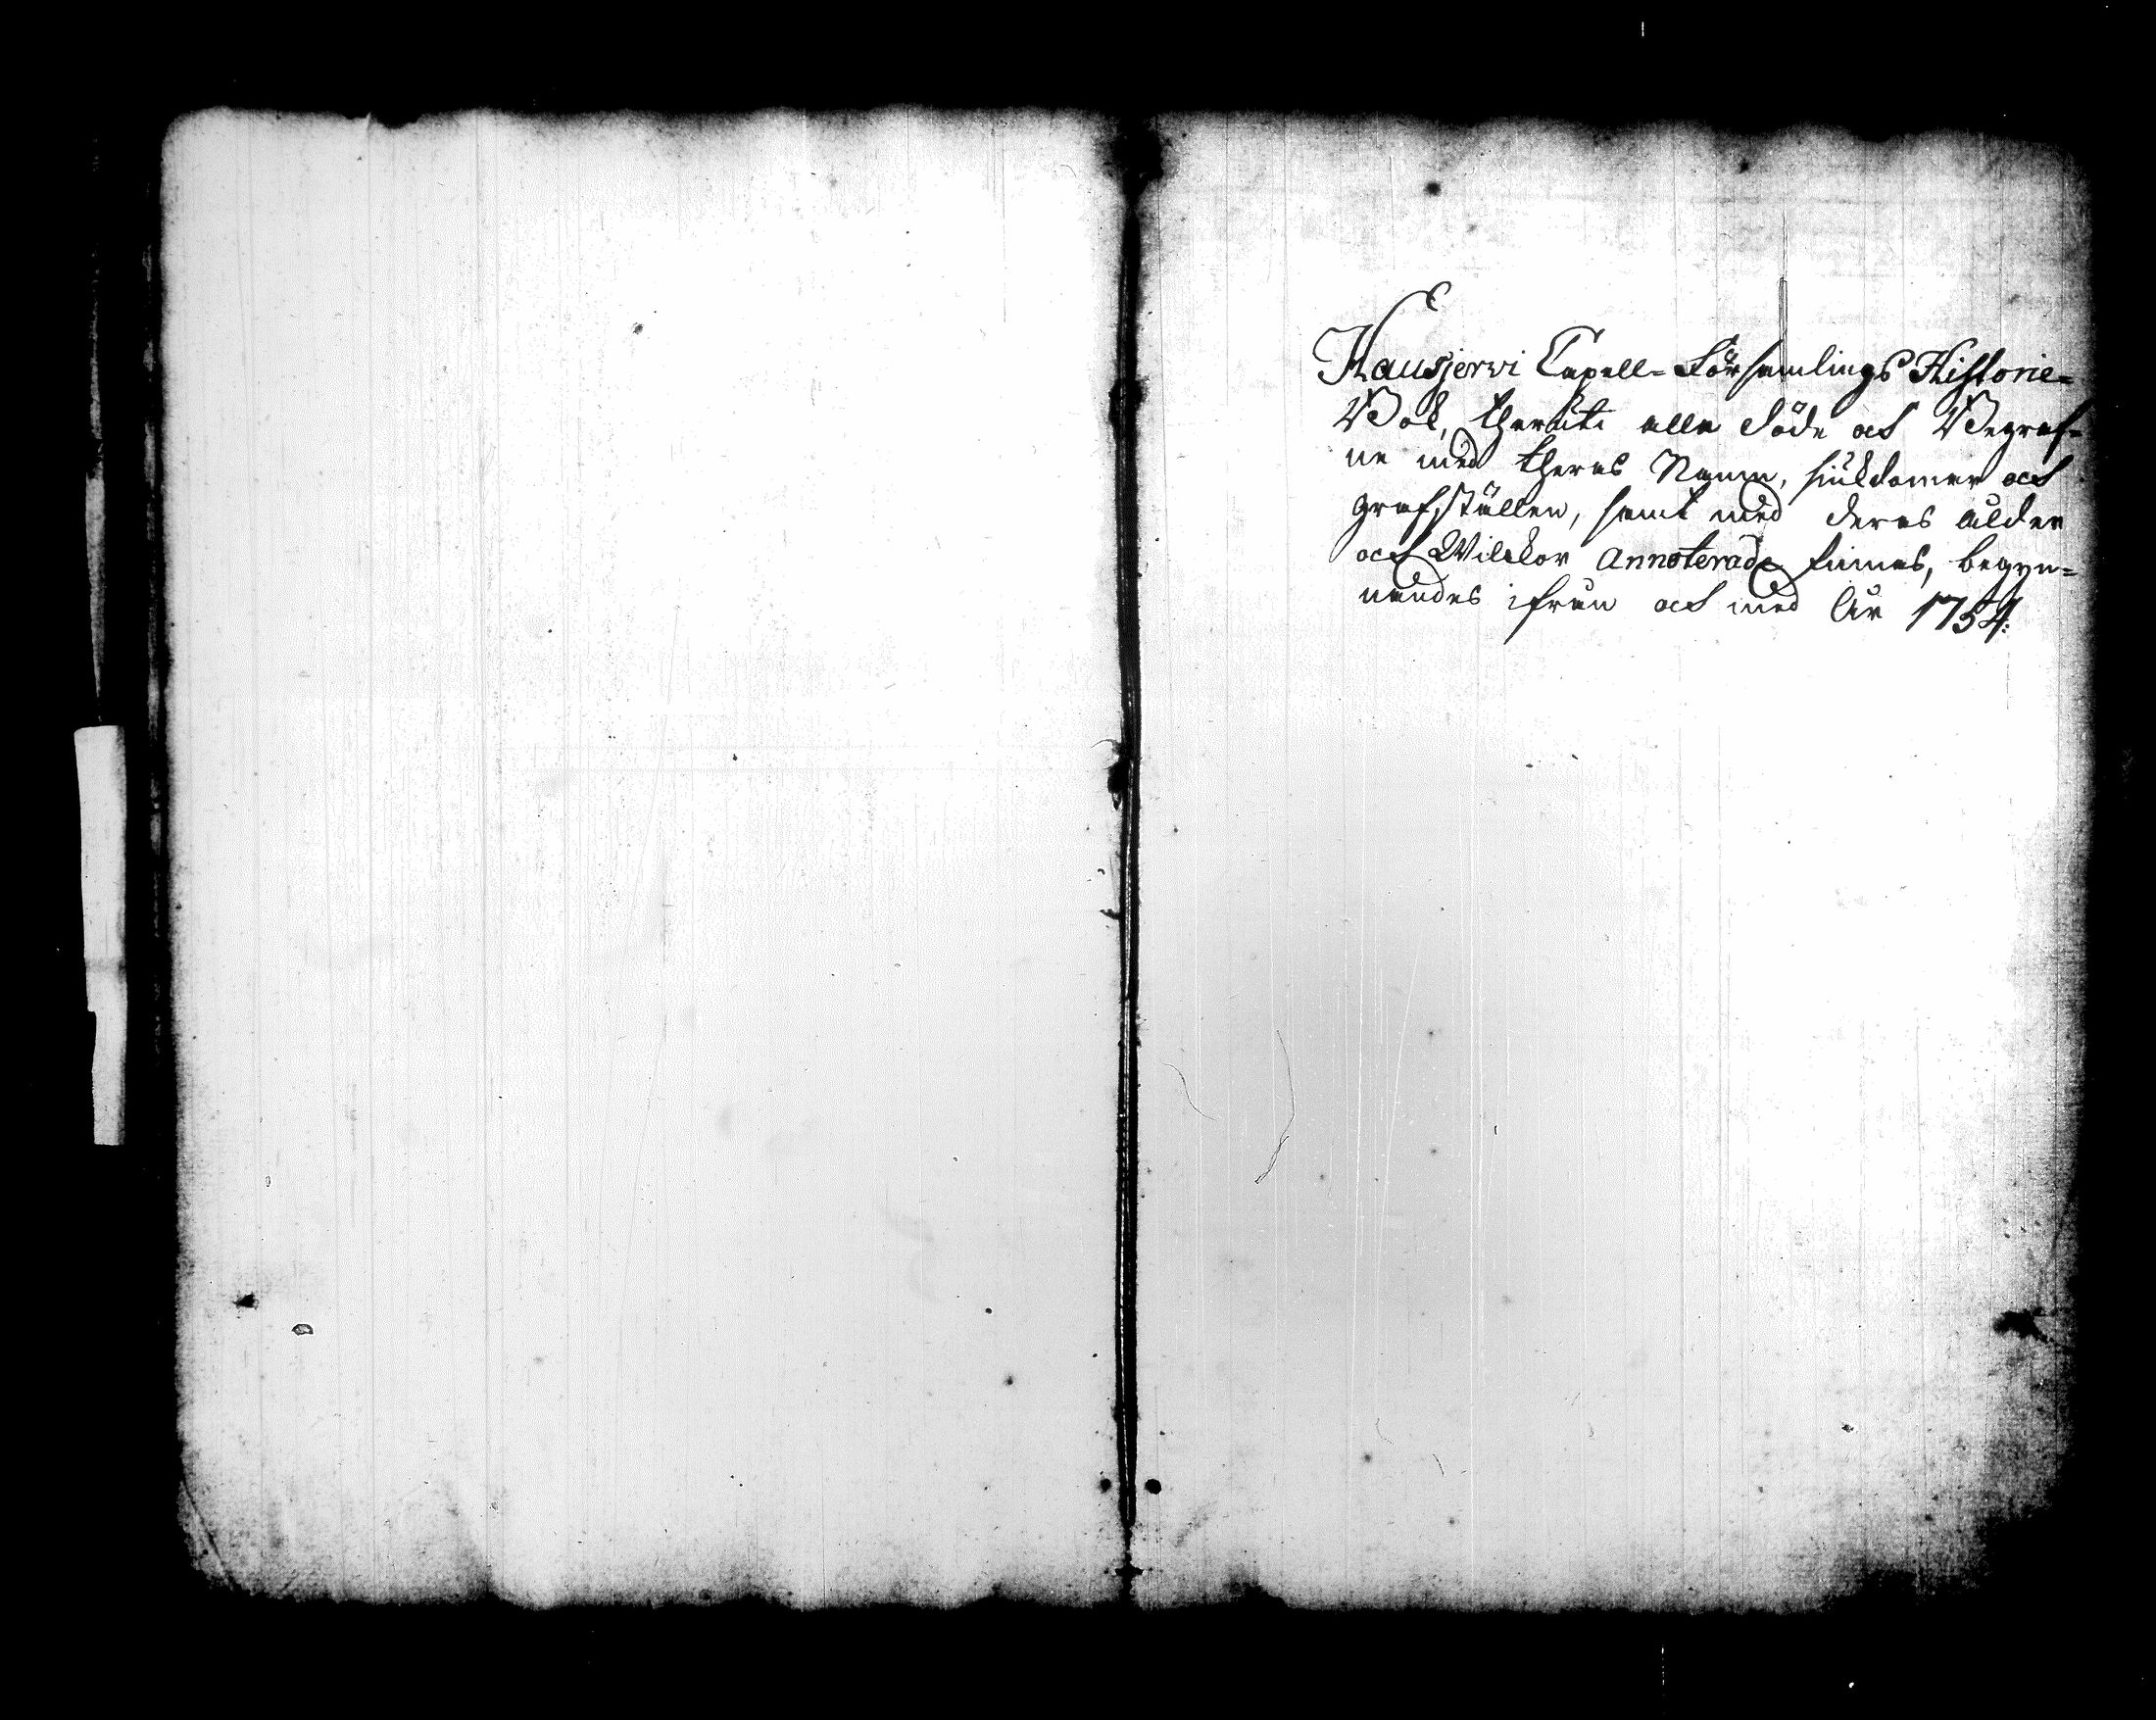 Hausjerwi Capell-Församlings Historie-
Bok, theruti alla döde och Begraf-
ne med theras Namn, siukdomar och
grafställen, samt med deras ålder
och Wilckor Annoterade finnas, begyn-
nandes ifrån och med År 1754.